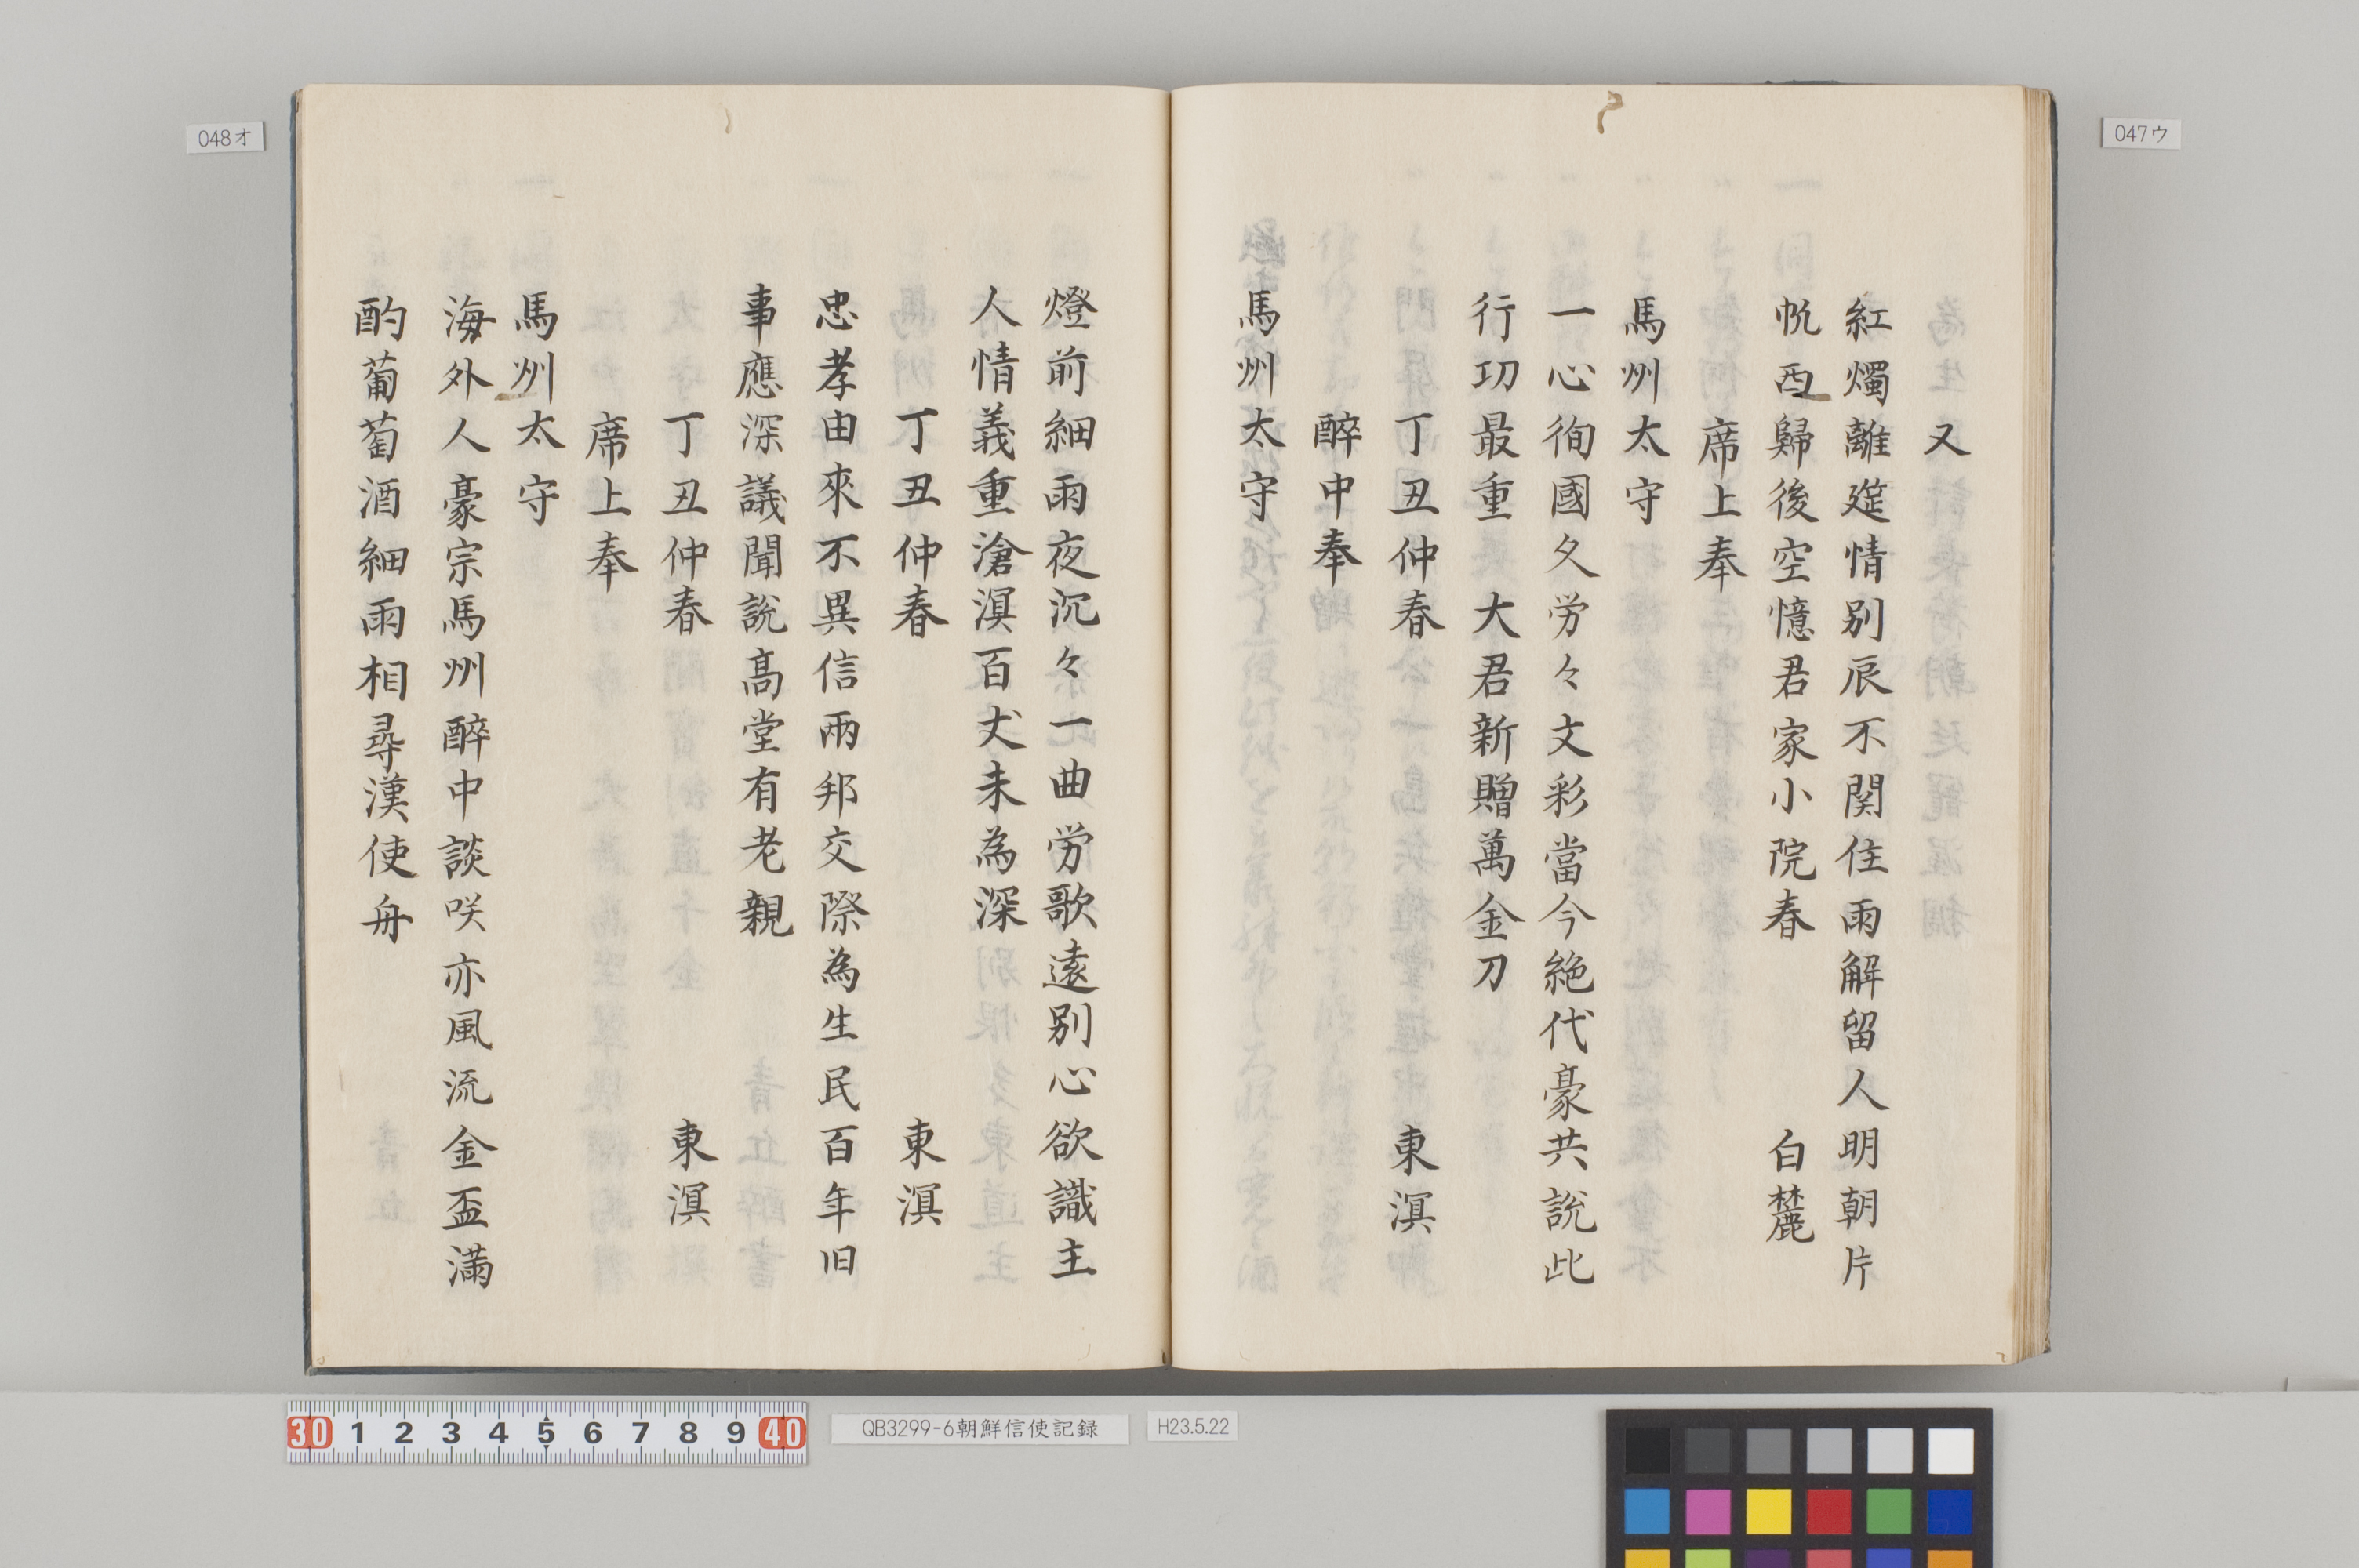 047ウ
又
紅燭離筵情別辰不関住雨解留人明朝片
帆西歸後空憶君家小院春　白麓
席上奉
馬州太守
一心徇國久労々文彩當今絶代豪共説此
行功最重　大君新贈萬金刀
丁丑仲春　東溟
醉中奉
馬州太守
048オ
燈前細雨夜沉々一曲労歌遠別心欲識主
人情義重滄溟百丈未為深
丁丑仲春　東溟
忠孝由來不異信兩邦交際為生民百年旧
事應深議聞説高堂有老親
丁丑仲春　東溟
席上奉
馬州太守
海外人豪宗馬州醉中談咲亦風流金盃滿
酌葡萄酒細雨相尋漢使舟
30 1 2 3 4 5 6 7 8 9 40
QB3299-6朝鮮信使記録
H23.5.22